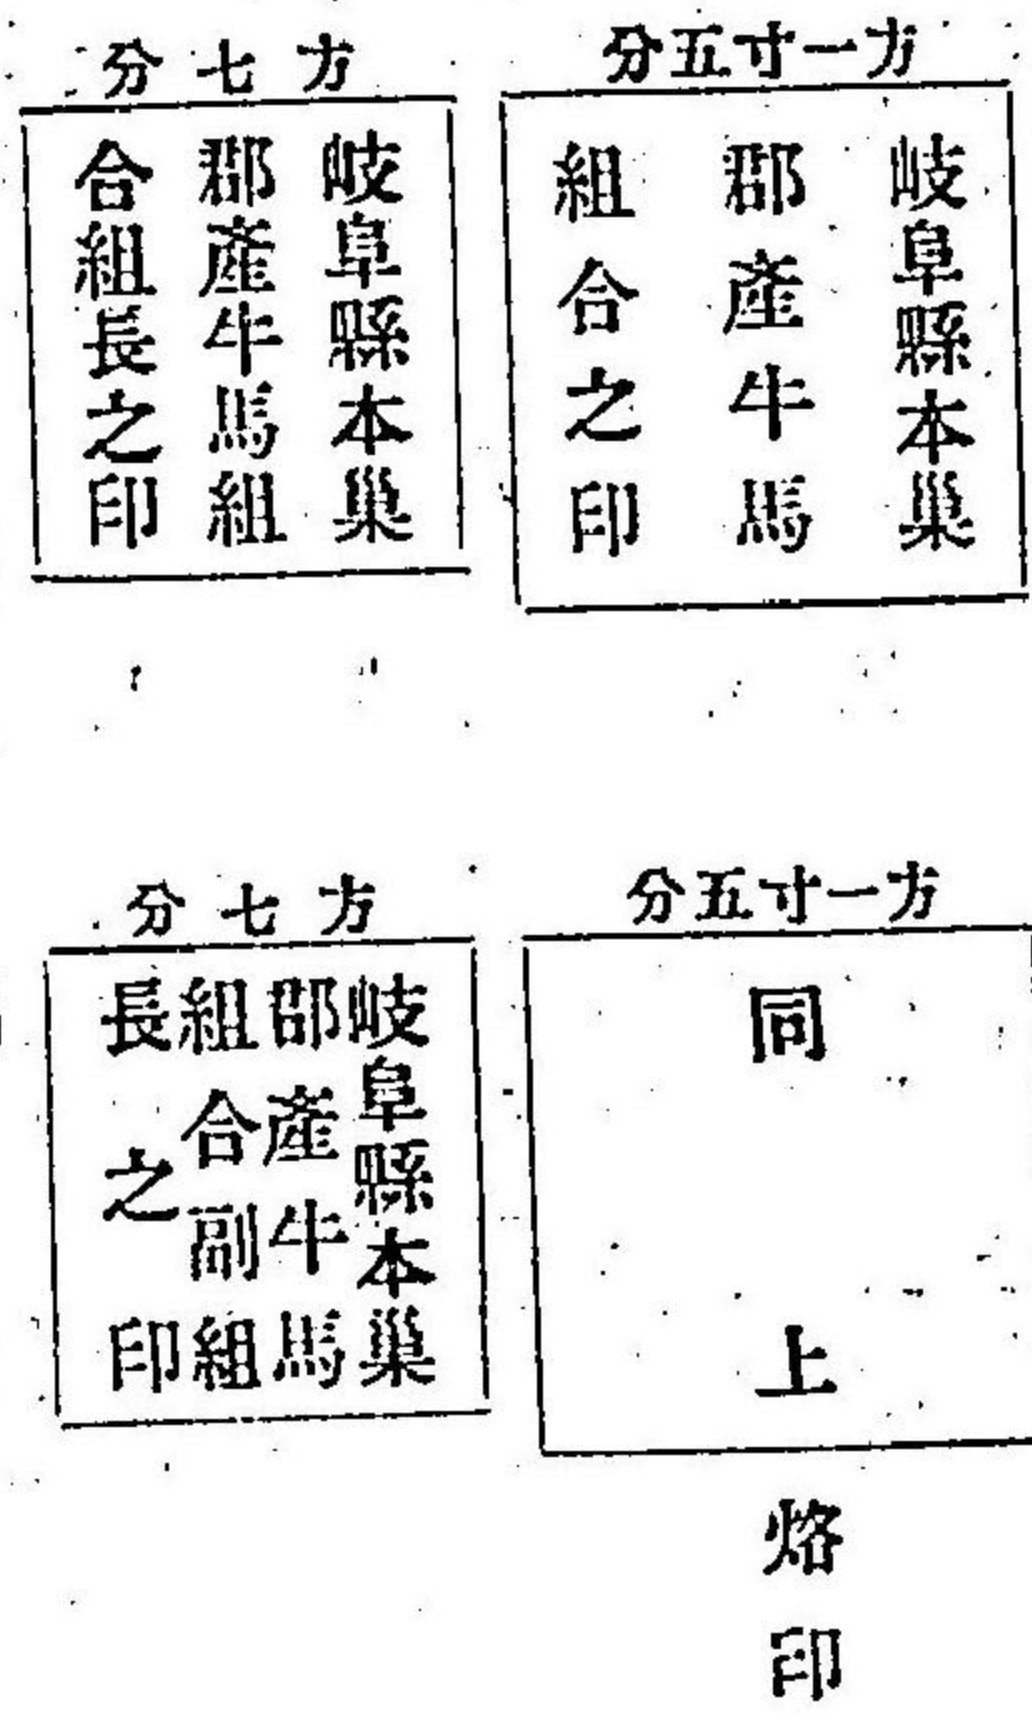 方一寸五分
岐阜縣本巢
郡產牛馬
組合之印
方七分
岐阜縣本巢
郡產牛馬組
合組長之印
方一寸五分
同上
烙印
方七分
岐阜縣本巢
郡產牛馬
組合副組
長之印